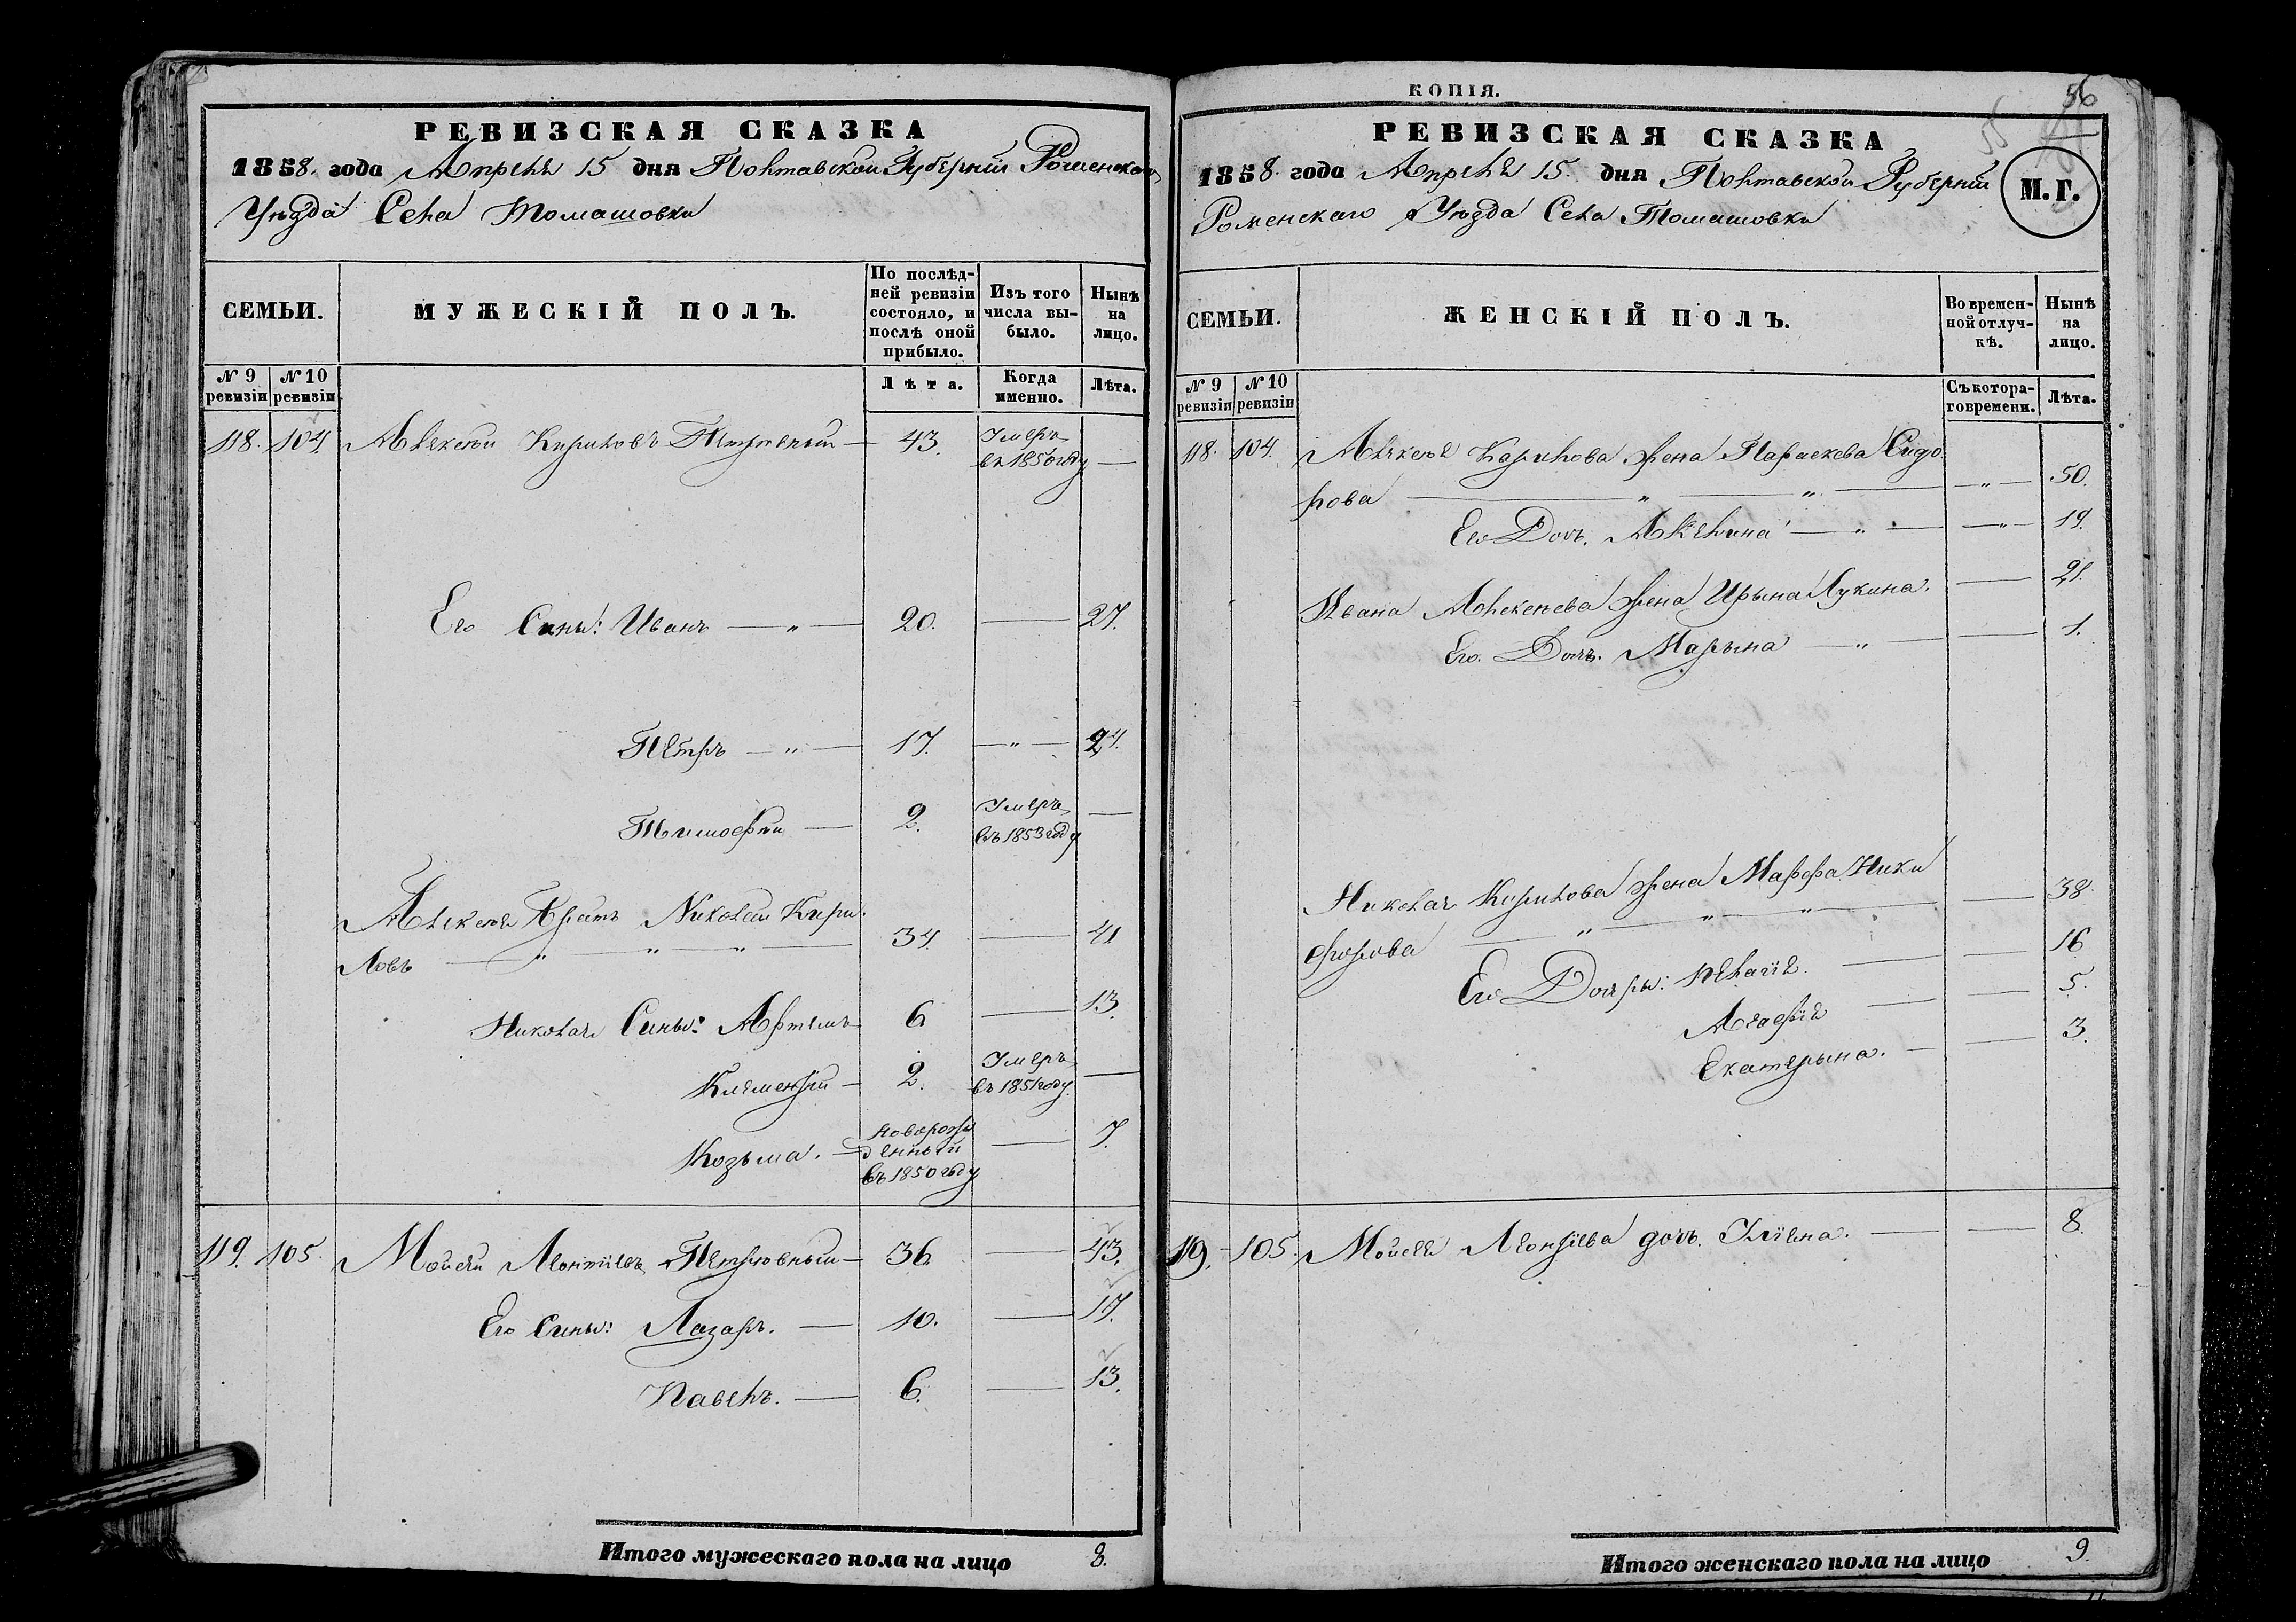 РЕВИЗСКАЯ СКАЗКА
1858. года Апреля 15 дня Полтавской Губерніи Роменского
Уѣзда Села Томашовки
СЕМЬИ.
МУЖЕСКІЙ ПОЛЪ.
По послѣд-
ней ревизіи
состояло, и
послѣ оной
прибыло.
Изъ того
числа вы-
было.
Нынѣ
на
лицо.
N 9
ревизіи
N 10
ревизіи
Лѣта.
Когда
именно.
Лѣта.
118. 104. Алексей Кириловъ Петровный — 43. Умеръ
въ 1850 году —
Его Сины: Иванъ — „ — 20. — 27.
Петръ — „ — 17. — „ — 24.
Тимофей — 2. Умеръ
въ 1853 году —
Алексея Братъ Николай Кири-
ловъ — „ — „ — 34. — 41
Николая Сины: Артемъ 6 — 13.
Клементий — 2. Умеръ
въ 1851 году —
Козьма. — Новорож
денный
въ 1850 году — 7.
119. 105. Мойсей Леонтіевъ Петровный — 36. — 43.
Его Сины: Лазаръ. — 10. — 17.
Павелъ. — 6. — 13.
Итого мужескаго пола на лицо 8.
КОПІЯ.
56
55
РЕВИЗСКАЯ СКАЗКА
1858. года Апреля 15. дня Полтавской Губерніи
Роменскаго Уѣзда Села Томашовки
М.Г.
СЕМЬИ.
ЖЕНСКІЙ ПОЛЪ.
Во времен-
ной отлуч-
кѣ.
Нынѣ
на
лицо.
N 9
ревизіи
N 10
ревизіи
Съ котора-
го времени.
Лѣта.
118. 104. Алексея Кирилова жена Параскева Сидо
рова — „ — „ — „ — 50.
Его Дочь. Акелина — „ — — „ — 19.
Ивана Алексеева жена Ирына Лукина. — 21.
Его Дочь. Марына — „ — — 1.
Николая Кирилова жена Марфа Ники
форова — „ — „ — „ — — 38.
Его Дочеры: Пелагія. — — 16
Агафія — — 5.
Екатерына. — — 3.
119. 105. Мойсея Леонтіева дочь. Уліяна. — — 8.
Итого женскаго пола на лицо 9.